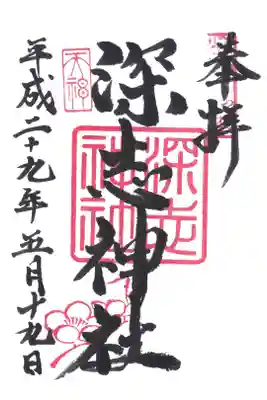 奉拝
深志神社
天神
深志神社
平成二十九年五月十九日